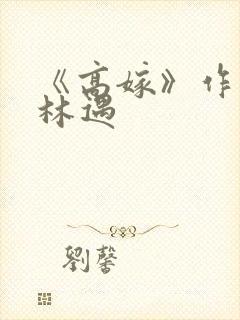 《高嫁》作
林遇
劉馨